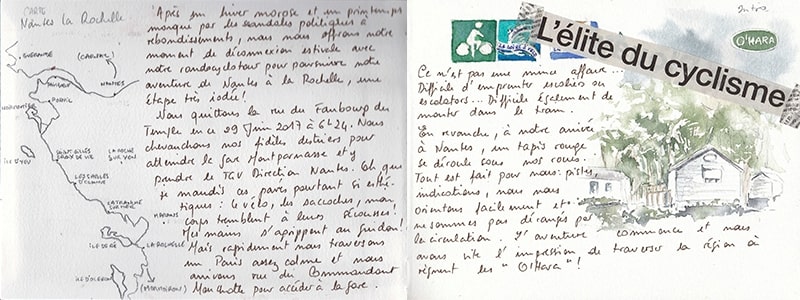 CARTE
Nantes la Rochelle
GUÉRANDE
(CARNET)
NANTES
PORNIC
NOIRMOUTIER
ÎLE D'YEU
SAINT-GILLES
CROIX DE VIE
LA ROCHE
SUR YON
LES SABLES
D'OLONNE
LA TRANCHE
SUR MER
MARANS
ÎLE DE RÉ
LA ROCHELLE
ÎLE D'OLÉRON
Après un hiver morose et un printemps
marqué par les scandales politiques à
rebondissements, nous nous offrons notre
moment de déconnexion estivale avec
notre randocyclotour pour poursuivre notre
aventure de Nantes à la Rochelle, une
étape très iodée!
Nous quittons la rue du Faubourg du
Temple en ce 29 Juin 2017 à 6h24. Nous
chevauchons nos fidèles destriers pour
atteindre la gare Montparnasse et y
prendre le TGV Direction Nantes. Oh que
je maudis ces pavés pourtant si esthé-
tiques : le vélo, les sacoches, mon
corps tremblent à leurs secousses!
Mes mains s'agrippent au guidon!
Mais rapidement nous traversons
un Paris assez calme et nous
arrivons rue du Commandant
Mouchotte pour accéder à la gare.
Intro
L'élite du cyclisme
O'HARA
Ce n'est pas une mince affaire...
Difficile d'emprunter escaliers ou
escalators... Difficile également de
monter dans le train.
En revanche, à notre arrivée
à Nantes, un tapis rouge
se déroule sous nos roues.
Tout est fait pour nous: pistes,
indications, nous nous
orientons facilement et
ne sommes pas dérangés par
la circulation. L'aventure commence et nous
avons vite l'impression de traverser la région à
régnent les "O'Hara"!